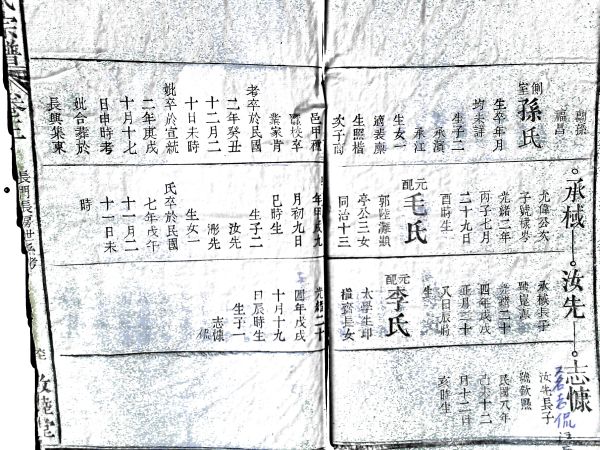 側室
孫氏
生卒年月
均未詳
生子二
承濱
承江
生女一
適裴廉
生照楷
次子商
邑甲種
業家肯
考卒於民國
二年癸丑
十二月二
十日未時
妣卒於宣統
二年庚戌
十月十七
日申時考
妣合葬於
長興集東
承棫
尤偉公次
子號樸學
光緒二年
丙子七月
二十九日
酉時生
元配
毛氏
郭陸灘鎮
亭公三女
同治十三
年甲戌九
月初九日
巳時生
生子二
汝先
澎先
生女一
氏卒於民國
七年戊午
十一月二
十一日未
時
汝先
承棫長子
光緒二十
四年戊戌
正月二十
又日辰時
生
元配
李氏
太學生印
楷齋長女
光緒二十
四年戊戌
十月十九
日辰時生
生子一
志慷
侃
志慷
汝先長子
號欽熙
民國八年
己未十二
月十二日
亥時生
名志侃
氏宗譜
卷之二
長門長房世系考
敦睦堂